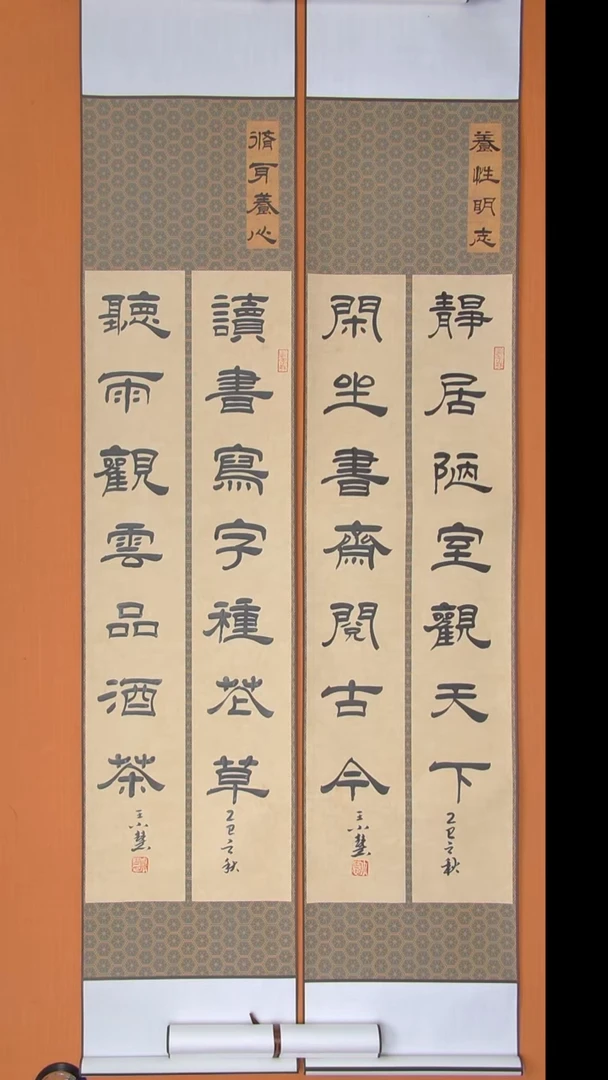 養性明志
靜居陋室觀天下
乙巳之秋
閑坐書齋閱古今
王小慧
脩身養心
讀書寫字種花草
乙巳之秋
聽雨觀雲品酒茶
王小慧